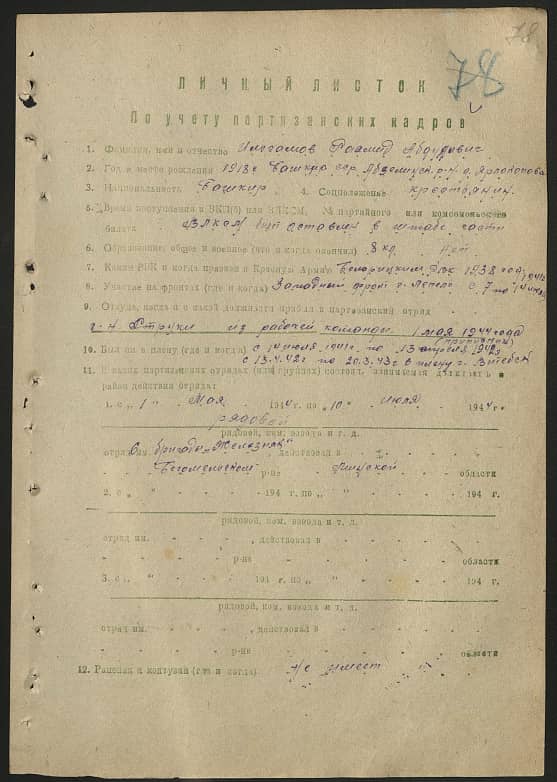 78
78
ЛИЧНЫЙ ЛИСТОК
По учету партизанских кадров
1. Фамилия, имя и отчество
2. Год и место рождения 1918 г.
3. Национальность Башкир. 4. Соцположение крестьянин.
5. Время вступления в ВКП(б) или ВЛКСМ, № партийного или комсомольского
билета ВЛКСМ оставлен в штабе части
6. Образование: общее и военное (что и когда окончил) 8 кл. нет
7. Каким РВК и когда призван в Красную Армию Белорецким РВК 1938 год
8. Участие на фронтах (где и когда) Западный фронт г. Лепель с 7 по 14 июля
9. Откуда, когда и с какой должности прибыл в партизанский отряд
из рабочей команды 1 мая 1944 года
10. Был ли в плену (где и когда) с 14 июля 1941 г. по 13 апреля 1942 г.
с 13.4.42 г. по 20.3.43 г. в плену г. Витебск
11. В каких партизанских отрядах (или группах) состоял, занимаемая должность и
район действия отряда:
1. с „ 1 “ Мая 1944 г. по „ 10 “ июля 1944 г.
рядовой
рядовой, ком. взвода и т. д.
отряд им. бригады „Железняк“, действовал в
Бегомльском р-не Минской области
2. с „ “ 194 г. по „ “ 194 г.
рядовой, ком. взвода и т. д.
отряд им. , действовал в
р-не области
3. с „ “ 194 г. по „ “ 194 г.
рядовой, ком. взвода и т. д.
отряд им. , действовал в
р-не области
12. Ранения и контузии (где и когда) не имеет